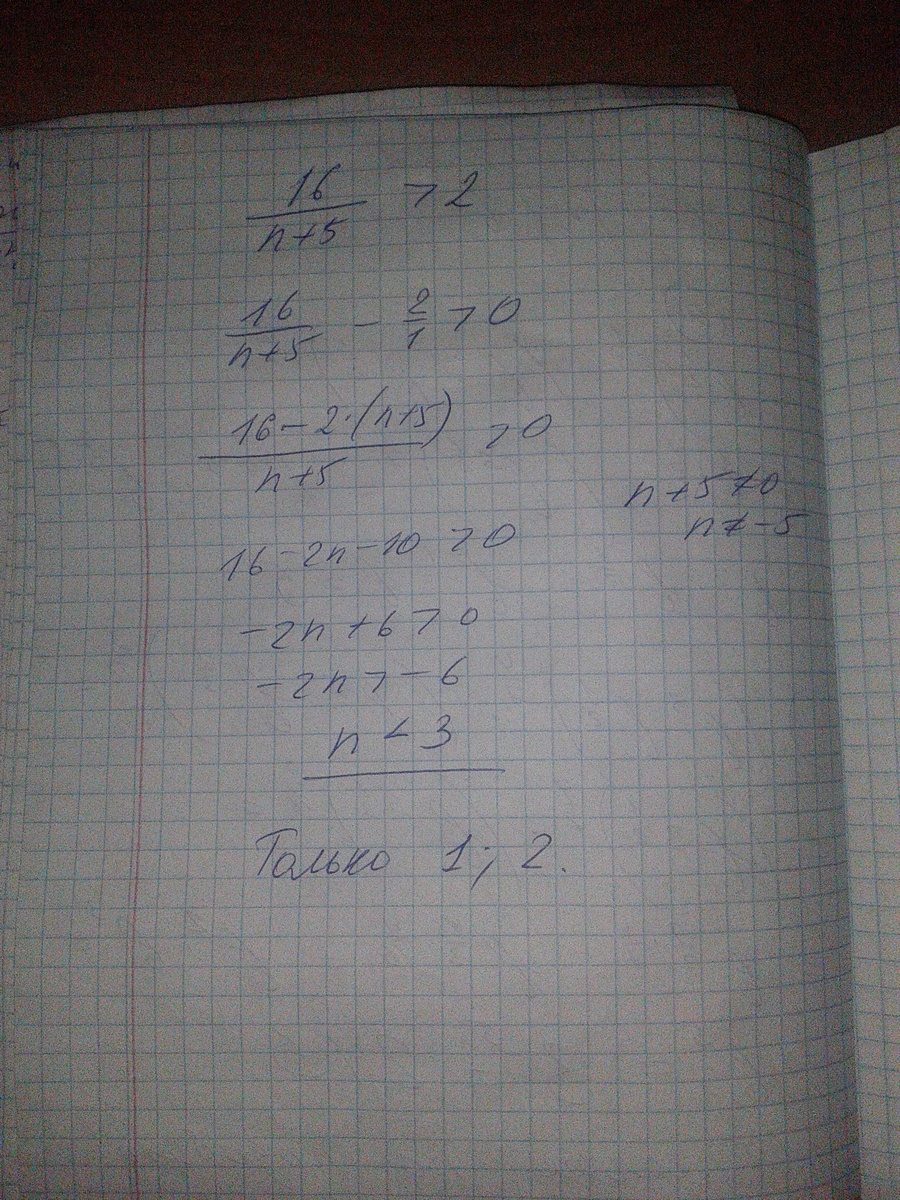 16/(n+5) > 2
16/(n+5) - 2/1 > 0
(16 - 2·(n+5))/(n+5) > 0
n + 5 ≠ 0
n ≠ -5
16 - 2n - 10 > 0
-2n + 6 > 0
-2n > -6
n < 3
Только 1; 2.